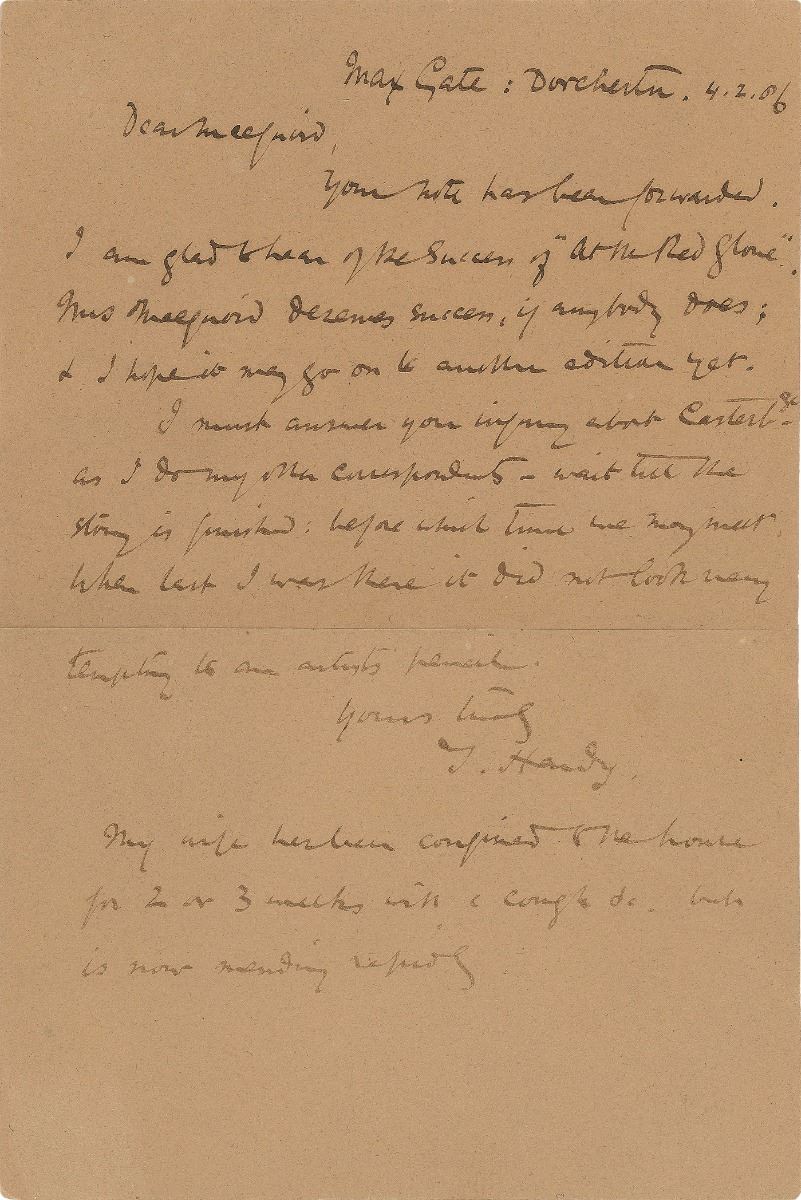 Max Gate : Dorchester. 4.2.86
Dear Macquoid,
Your note has been forwarded.
I am glad to hear of the success of "At the Red Glove".
Mrs Macquoid deserves success, if anybody does;
& I hope it may go on to another edition yet.
I must answer your inquiry about Casterb.ge
as I do my other correspondents - wait till the
story is finished: before which time we may meet.
When last I was there it did not look very
tempting to an artist's pencil.
Yours truly
T. Hardy.
My wife has been confined to the house
for 2 or 3 weeks with a cough &c. but
is now mending rapidly